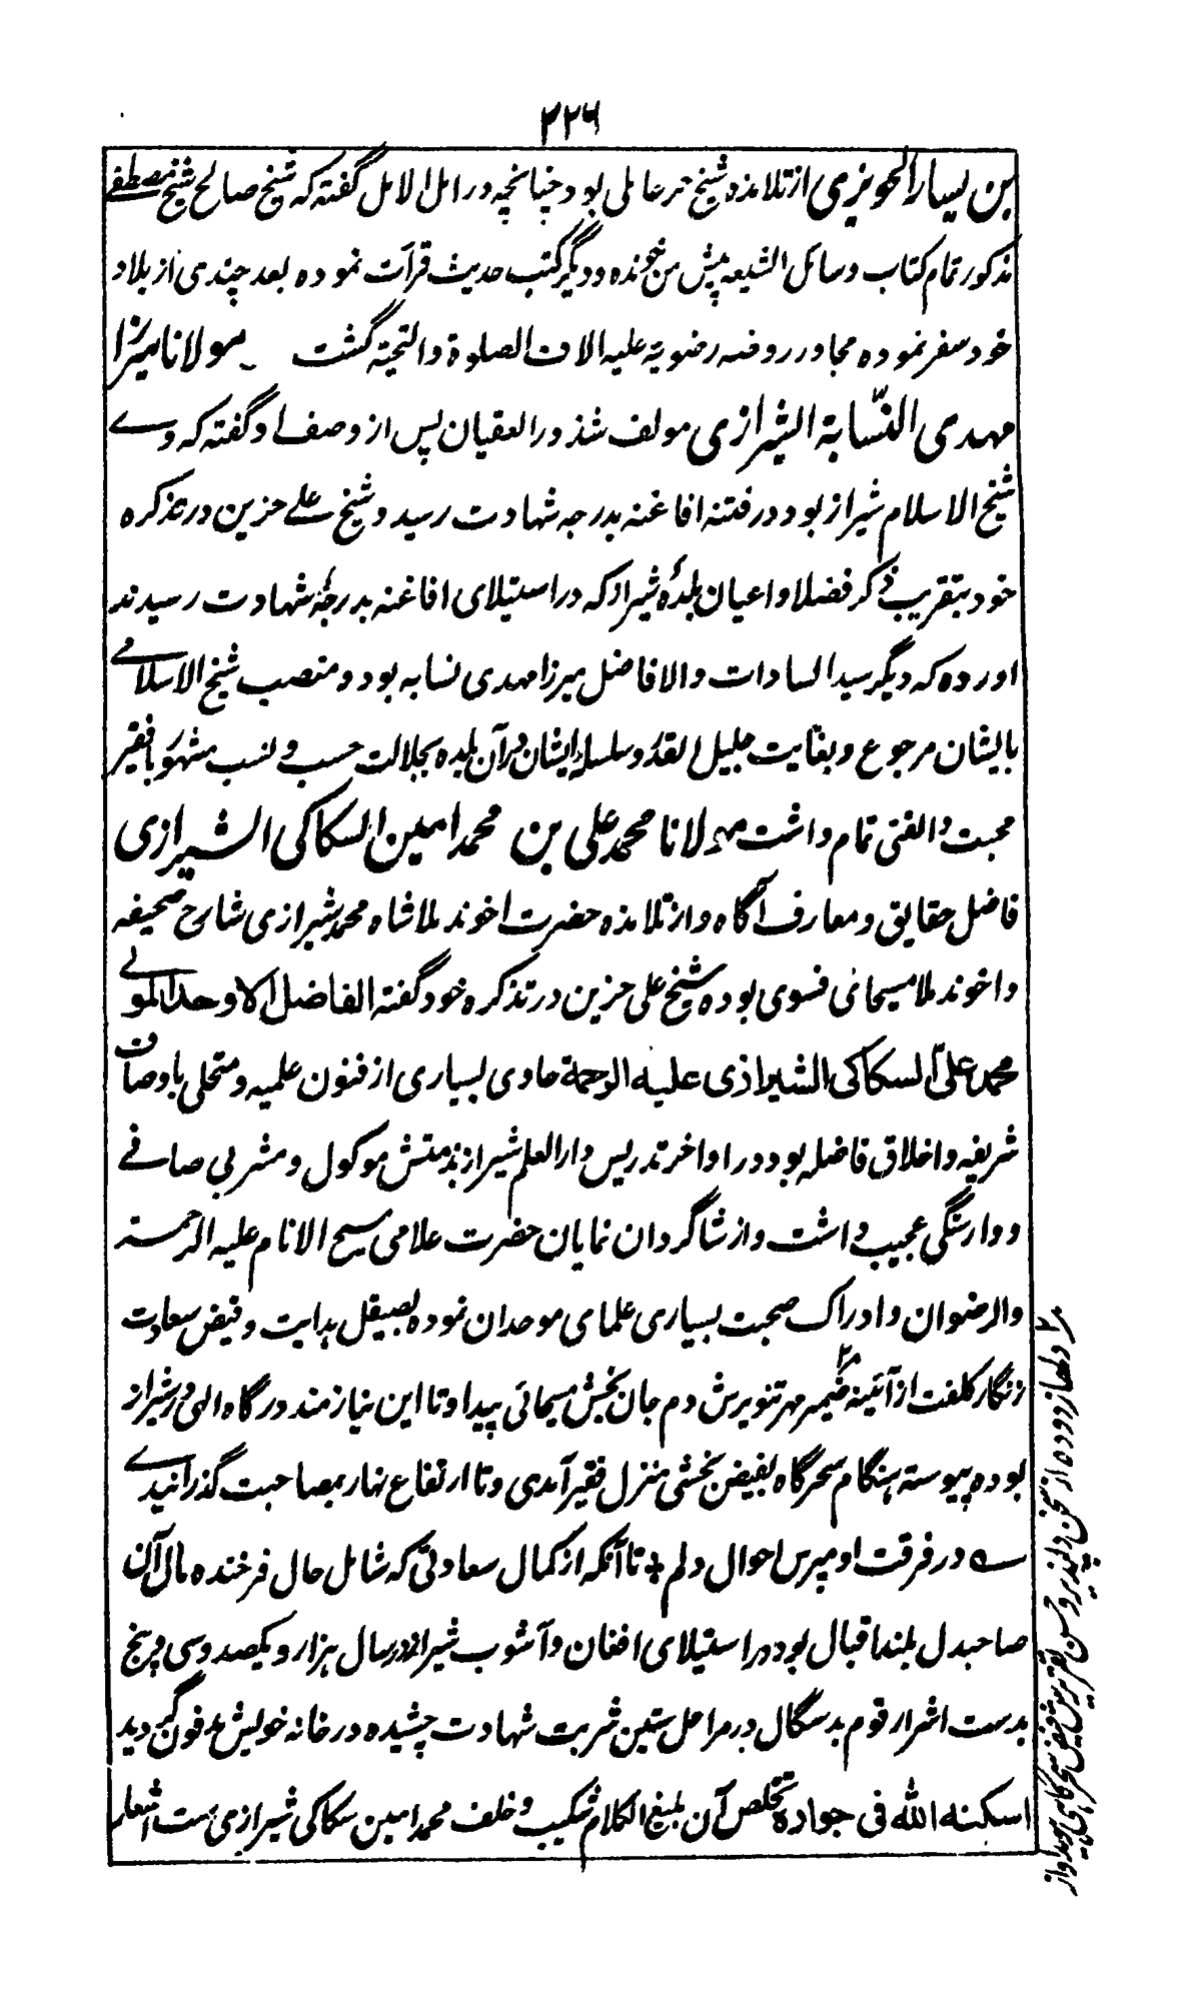 ۲۲۶
بن یسار الحویزی از تلامذه شیخ حر عاملی بود چنانچه در امل الامل گفته که شیخ صالح شیخ مصطفے
مذکور تمام کتاب وسائل الشیعه پیش من خوانده و دیگر کتب حدیث قرآت نموده بعد چندی از بلاد
خود سفر نموده مجاور روضه رضویة علیه الاف الصلوة والتحیة گشت ۔ مولانا میرزا
مهدی النّسابة الشیرازی مولف شذور العقیان پس از وصف او گفته که وے
شیخ الاسلام شیراز بود در فتنه افاغنه بدرجه شهادت رسید و شیخ علے حزین در تذکره
خود بتقریب ذکر فضلا و اعیان بلدهٔ شیراز که در استیلای افاغنه بدرجهٔ شهادت رسیدند
اورده که دیگر سید السادات والافاضل میرزا مهدی نسابه بود و منصب شیخ الاسلامے
بایشان مرجوع و بغایت جلیل القدر و سلسله ایشان در آن بلده بجلالت حسب و نسب مشهور با فقیر
محبت و الفتی تمام داشت مولانا محمد علی بن محمد امین السکاکی الشیرازی
فاضل حقایق و معارف آگاه و از تلامذه حضرت اخوند ملا شاه محمد شیرازی شارح صحیفه
و اخوند ملا مسیحای فسوی بوده شیخ علی حزین در تذکره خود گفته الفاضل الاوحد المولے
محمد علی السکاکی الشیرازی علیه الرحمة حاوی بسیاری از فنون علمیه و متحلی باوصاف
شریفه و اخلاق فاضله بود در اواخر تدریس دار العلم شیراز بذمتش موکول و مشربی صافے
و وارستگی عجیب داشت و از شاگردان نمایان حضرت علامی مسیح الانام علیه الرحمة
والرضوان و ادراک صحبت بسیاری علمای موحدان نموده بصیقل هدایت و فیض سعادت
زنگار کلفت از آئینه ضمیر مهر تنویرش دم جان بخش مسیحائی پیدا و تا این نیازمند درگاه الهی در شیراز
بوده پیوسته هنگام سحرگاه بفیض بخشی منزل فقیر آمدی و تا ارتفاع نهار بمصاحبت گذرانیدے
؎ در فرقت او مپرس احوال دلم + تا آنکه از کمال سعادتی که شامل حال فرخنده مال آن
صاحبدل بلند اقبال بود در استیلای افغان و آشوب شیراز در سال هزار و یکصد و سی و پنج
بدست اشرار قوم بدسگال در مراحل ستین شربت شهادت چشیده در خانه خویش مدفون گردید
اسکنه الله فی جواده تخلص آن بلیغ الکلام شکیب و خلف محمد امین سکاکی شیرازی ست اشعار